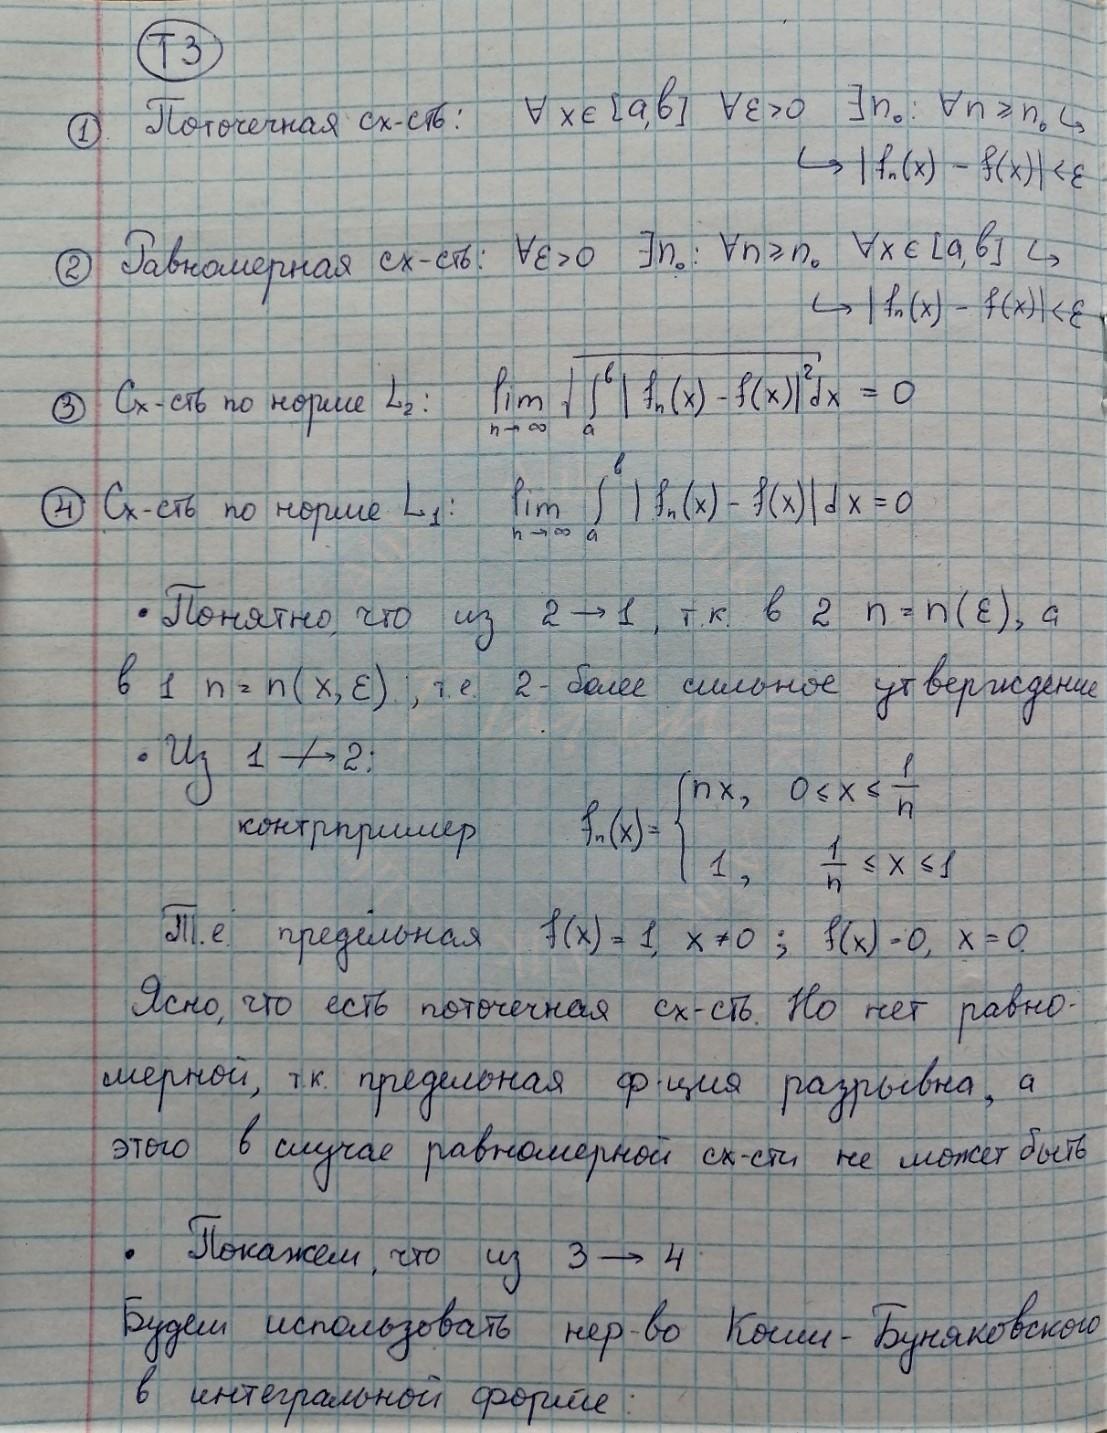 T3
① Поточечная сх-сть: ∀ x ∈ [a,b] ∀ε>0 ∃n₀: ∀n ≥ n₀ ↪
↪ |fₙ(x) - f(x)| < ε
② Равномерная сх-сть: ∀ε>0 ∃n₀: ∀n ≥ n₀ ∀x ∈ [a,b] ↪
↪ |fₙ(x) - f(x)| < ε
③ Сх-сть по норме L₂: lim_{n→∞} √(∫ₐᵇ |fₙ(x) - f(x)|² dx) = 0
④ Сх-сть по норме L₁: lim_{n→∞} ∫ₐᵇ |fₙ(x) - f(x)| dx = 0
• Понятно, что из 2 → 1, т.к. в 2 n = n(ε), а
в 1 n = n(x, ε), т.е. 2 - более сильное утверждение
• Из 1 ↛ 2:
контрпример fₙ(x) = { nx, 0 ≤ x ≤ 1/n
1, 1/n ≤ x ≤ 1
Т.е. предельная f(x) = 1, x ≠ 0 ; f(x) = 0, x = 0.
Ясно, что есть поточечная сх-сть. Но нет равно-
мерной, т.к. предельная ф-ция разрывна, а
этого в случае равномерной сх-сти не может быть
• Покажем, что из 3 → 4
Будем использовать нер-во Коши-Буняковского
в интегральной форме: